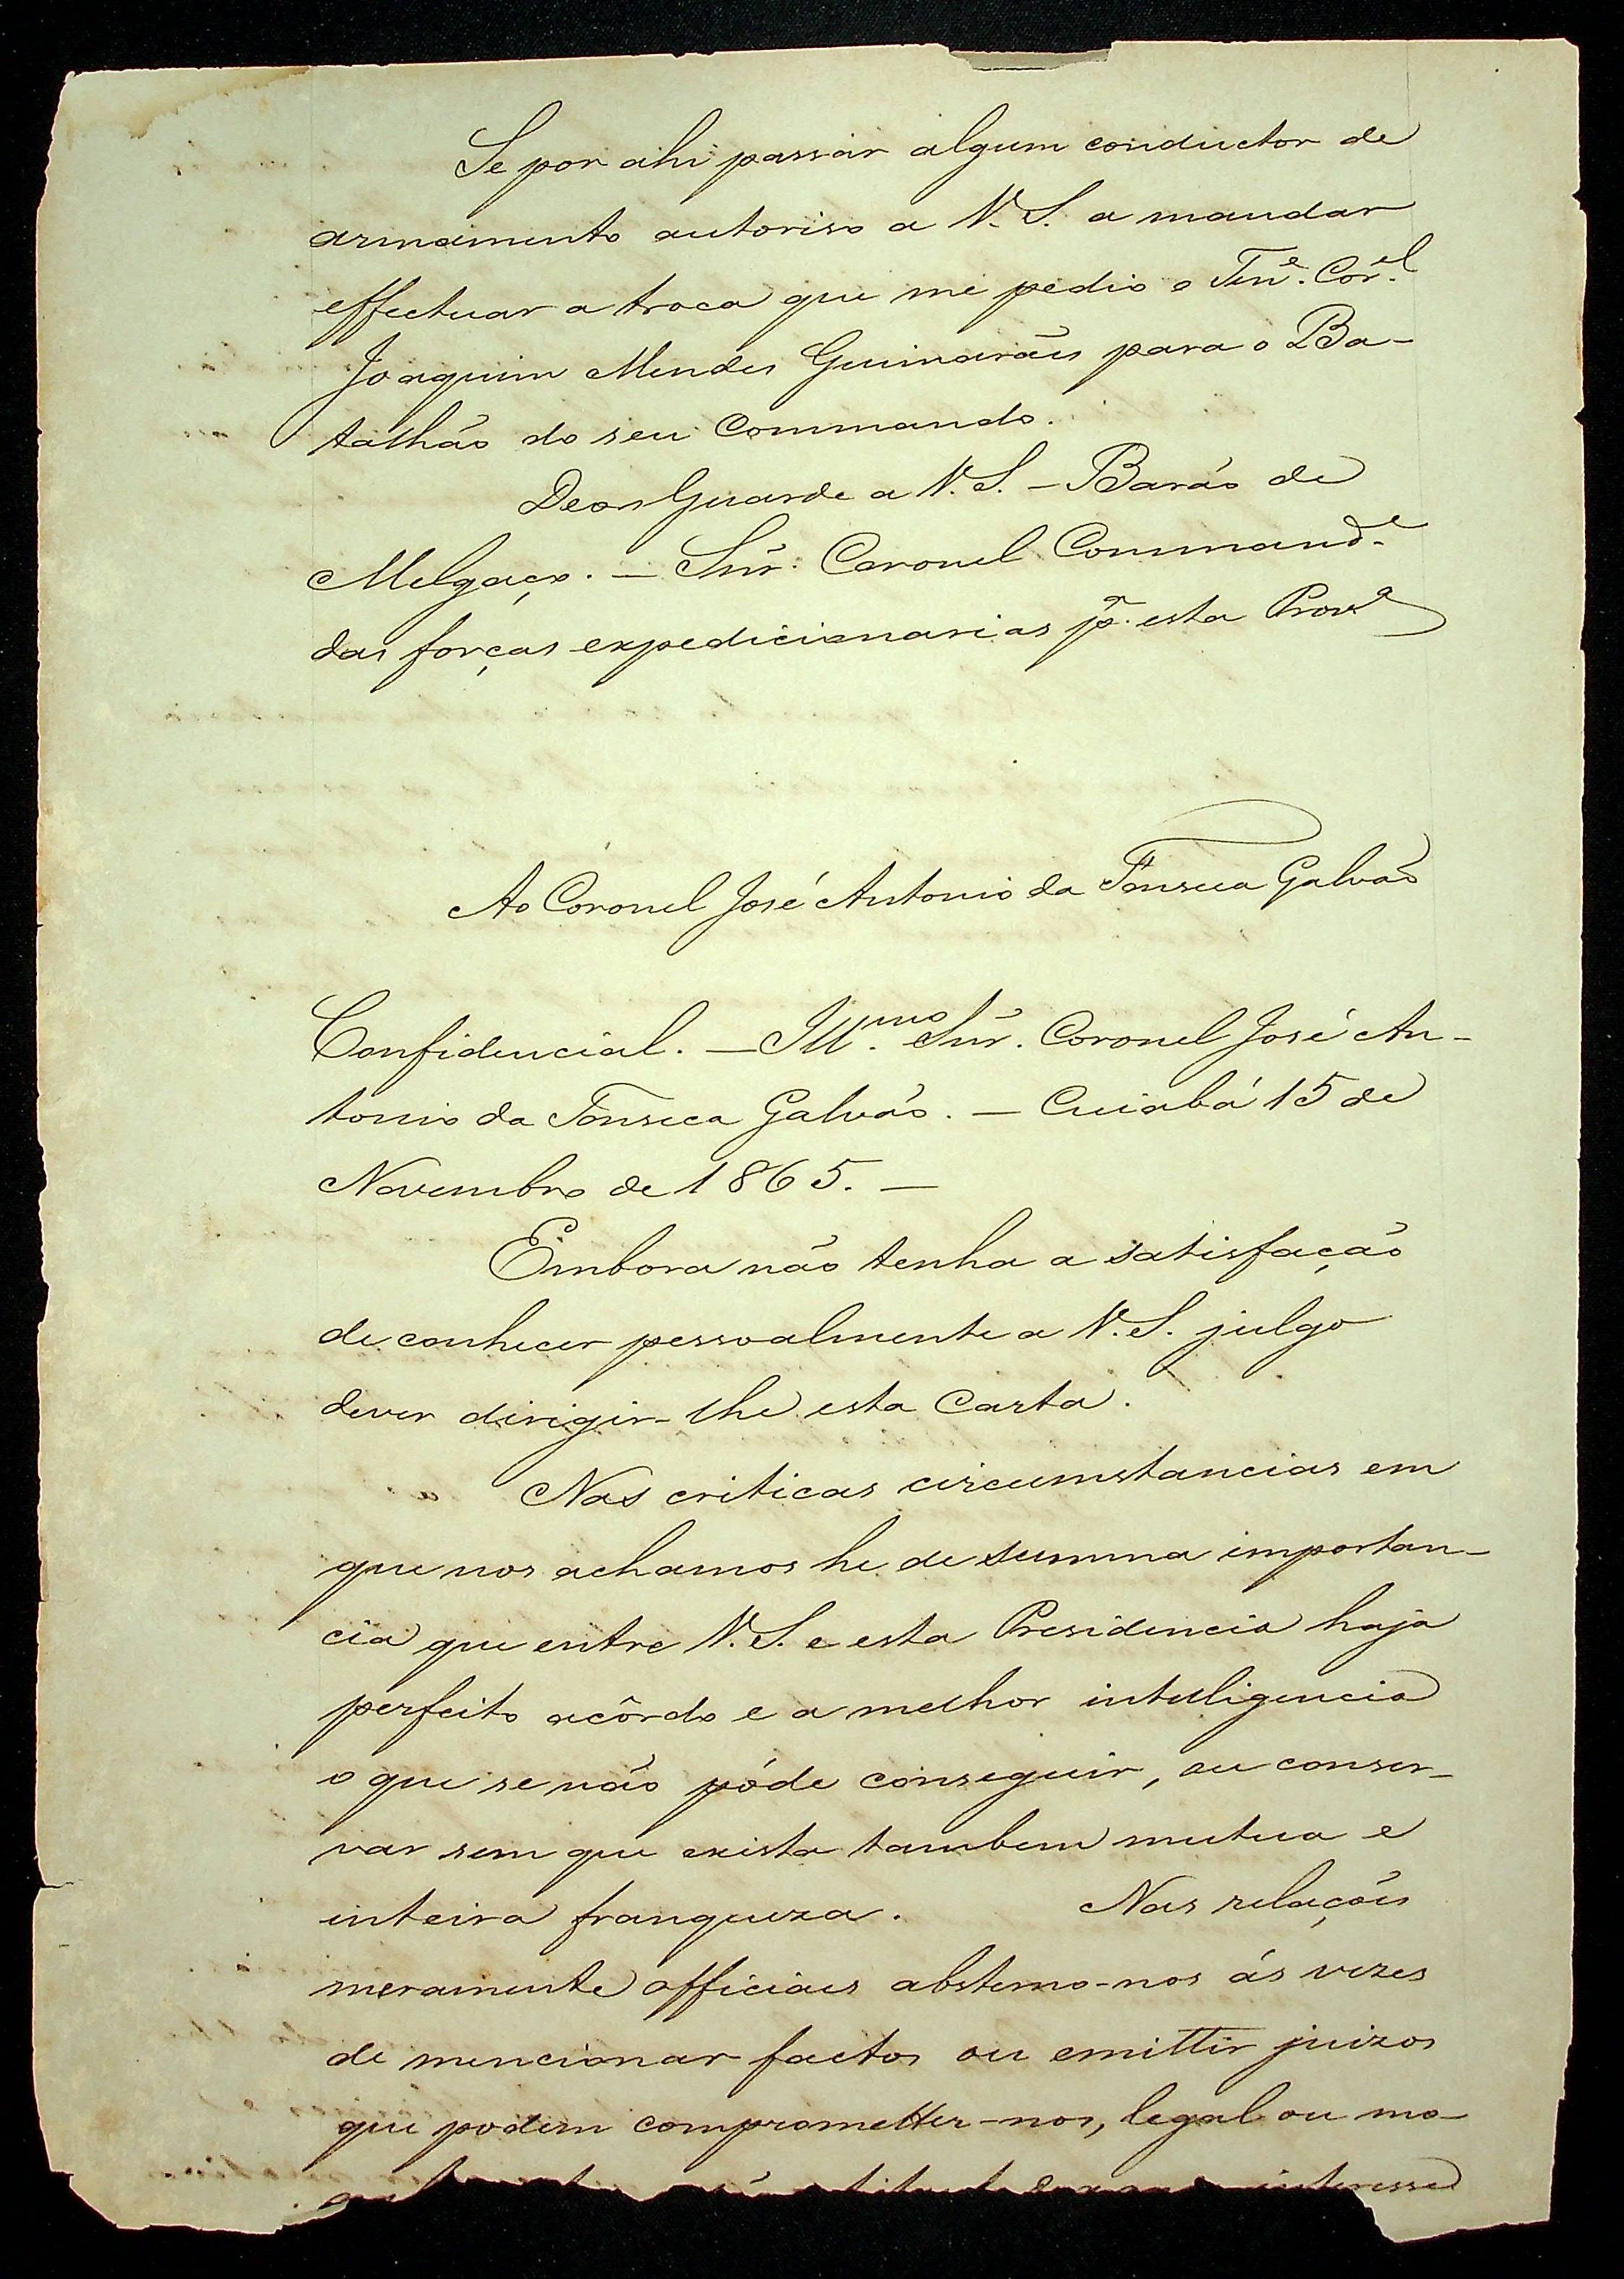 Se por ahi passar algum conductor de
armamento autoriso a V. S. a mandar
effectuar a troca que me pedio o Ten.e Cor.el
Joaquim Mendes Guimarães para o Ba-
talhão do seu Commando.
Deos Guarde a V. S. - Barão de
Melgaço. - Snr. Coronel Command.e
das forças expedicionarias p.a esta Prov.a
Ao Coronel José Antonio da Fonseca Galvão
Confidencial. - Ill.mo Snr. Coronel José An-
tonio da Fonseca Galvão. - Cuiabá 15 de
Novembro de 1865. -
Embora não tenha a satisfação
de conhecer pessoalmente a V. S. julgo
dever dirigir-lhe esta Carta.
Nas criticas circumstancias em
que nos achamos he de summa importan-
cia que entre V. S. e esta Presidencia haja
perfeito acôrdo e a melhor intelligencia
o que se não póde conseguir, ou conser-
var sem que exista tambem mutua e
inteira franqueza. Nas relações
meramente officiaes abstemo-nos ás vezes
de mencionar factos ou emittir juizos
que podem comprometter-nos, legal ou mo-
interesse